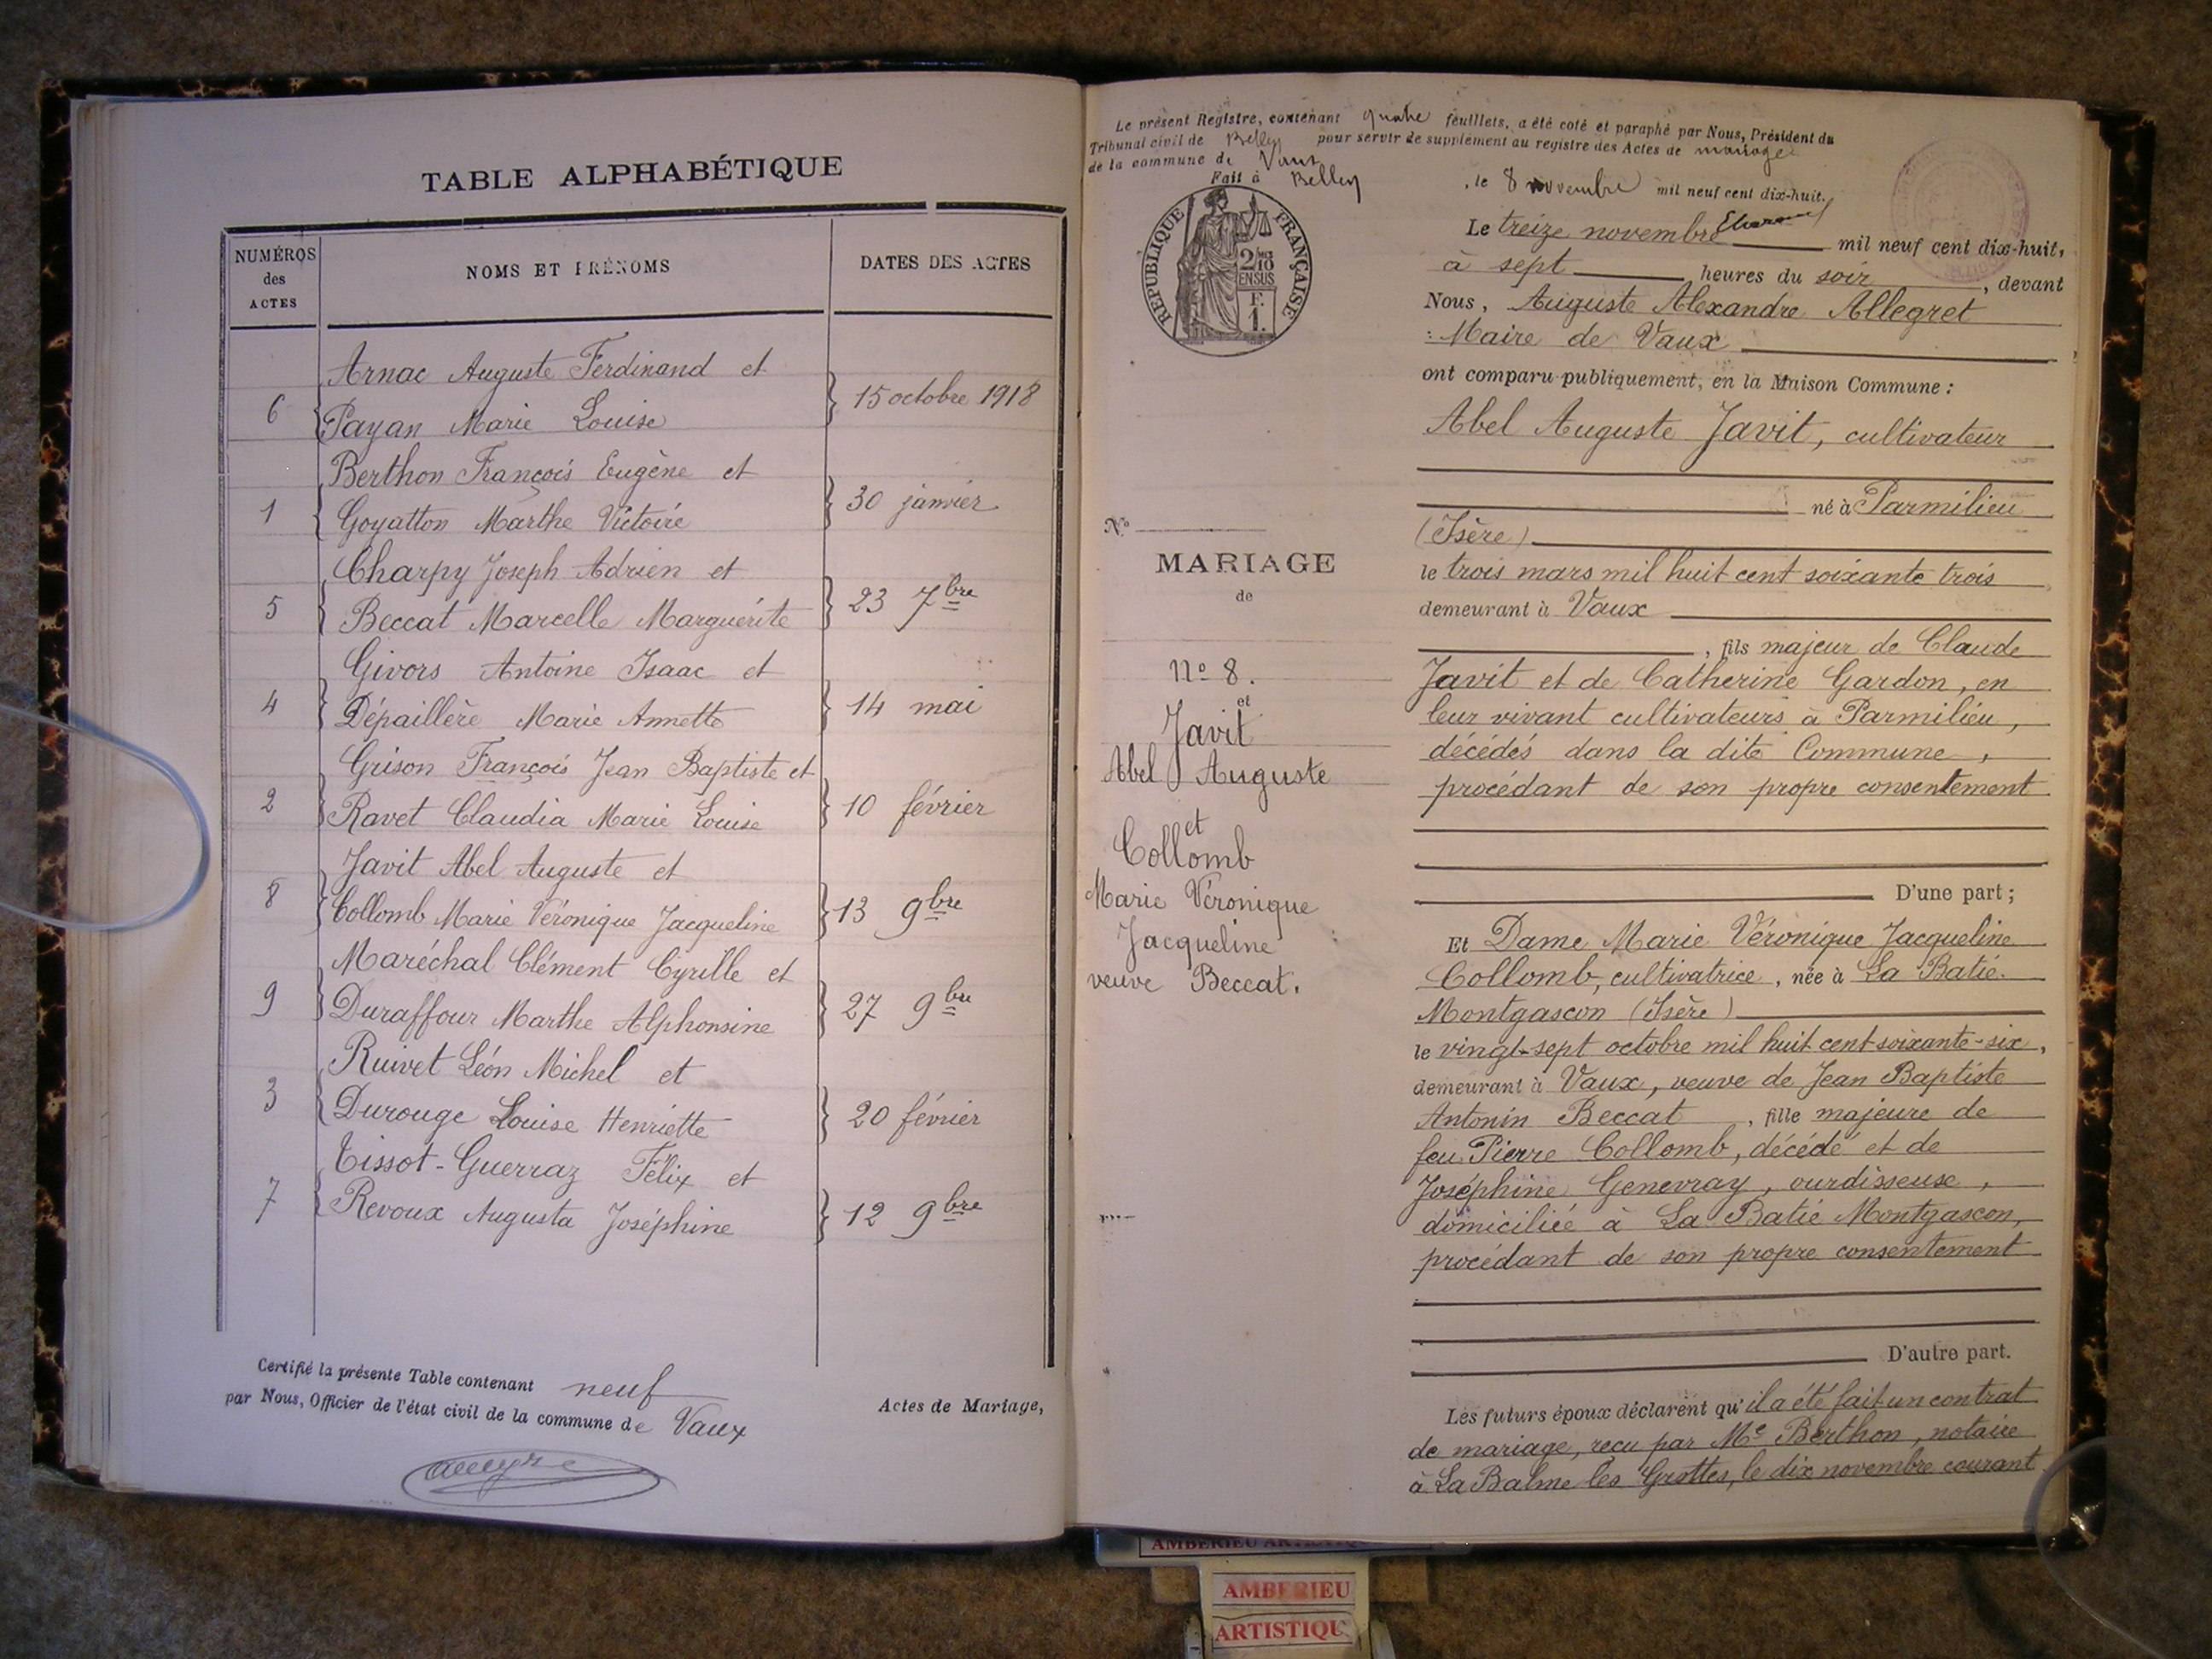 TABLE ALPHABÉTIQUE
NUMÉROS des ACTES
NOMS ET PRÉNOMS
DATES DES ACTES
Arnac Auguste Ferdinand et
6 Payan Marie Louise 15 octobre 1918
Berthon François Eugène et
1 Goyatton Marthe Victoire 30 janvier
Charpy Joseph Adrien et
5 Beccat Marcelle Marguerite 23 7bre
Givors Antoine Isaac et
4 Dépaillère Marie Annette 14 mai
Grison François Jean Baptiste et
2 Ravet Claudia Marie Louise 10 février
Javit Abel Auguste et
8 Collomb Marie Véronique Jacqueline 13 9bre
Maréchal Clément Cyrille et
9 Duraffour Marthe Alphonsine 27 9bre
Ruivet Léon Michel et
3 Durouge Louise Henriette 20 février
Tissot-Guerraz Félix et
7 Revoux Augusta Joséphine 12 9bre
Certifié la présente Table contenant neuf Actes de Mariage,
par Nous, Officier de l'état civil de la commune de Vaux
Le présent Registre, contenant quatre feuillets, a été coté et paraphé par Nous, Président du
Tribunal civil de Belley pour servir de supplément au registre des Actes de mariage
de la commune de Vaux
Fait à Belley, le 8 novembre mil neuf cent dix-huit.
RÉPUBLIQUE FRANÇAISE
2/10 EN SUS
F.
1.
No
MARIAGE
de
No 8.
et
Javit
Abel Auguste
et
Collomb
Marie Véronique
Jacqueline
veuve Beccat.
Le treize novembre mil neuf cent dix-huit,
à sept heures du soir, devant
Nous, Auguste Alexandre Allegret
Maire de Vaux
ont comparu publiquement, en la Maison Commune :
Abel Auguste Javit, cultivateur
né à Parmilieu
(Isère)
le trois mars mil huit cent soixante trois
demeurant à Vaux
, fils majeur de Claude
Javit et de Catherine Gardon, en
leur vivant cultivateurs à Parmilieu,
décédés dans la dite Commune,
procédant de son propre consentement
D'une part ;
Et Dame Marie Véronique Jacqueline
Collomb, cultivatrice, née à La Batie.
Montgascon (Isère)
le vingt-sept octobre mil huit cent soixante-six,
demeurant à Vaux, veuve de Jean Baptiste
Antonin Beccat, fille majeure de
feu Pierre Collomb, décédé et de
Joséphine Genevray, ourdisseuse,
domiciliée à La Batie Montgascon,
procédant de son propre consentement
D'autre part.
Les futurs époux déclarent qu'il a été fait un contrat
de mariage, reçu par Me Berthon, notaire
à La Balme les Grottes, le dix novembre courant
AMBERIEU
AMBERIEU
ARTISTIQU